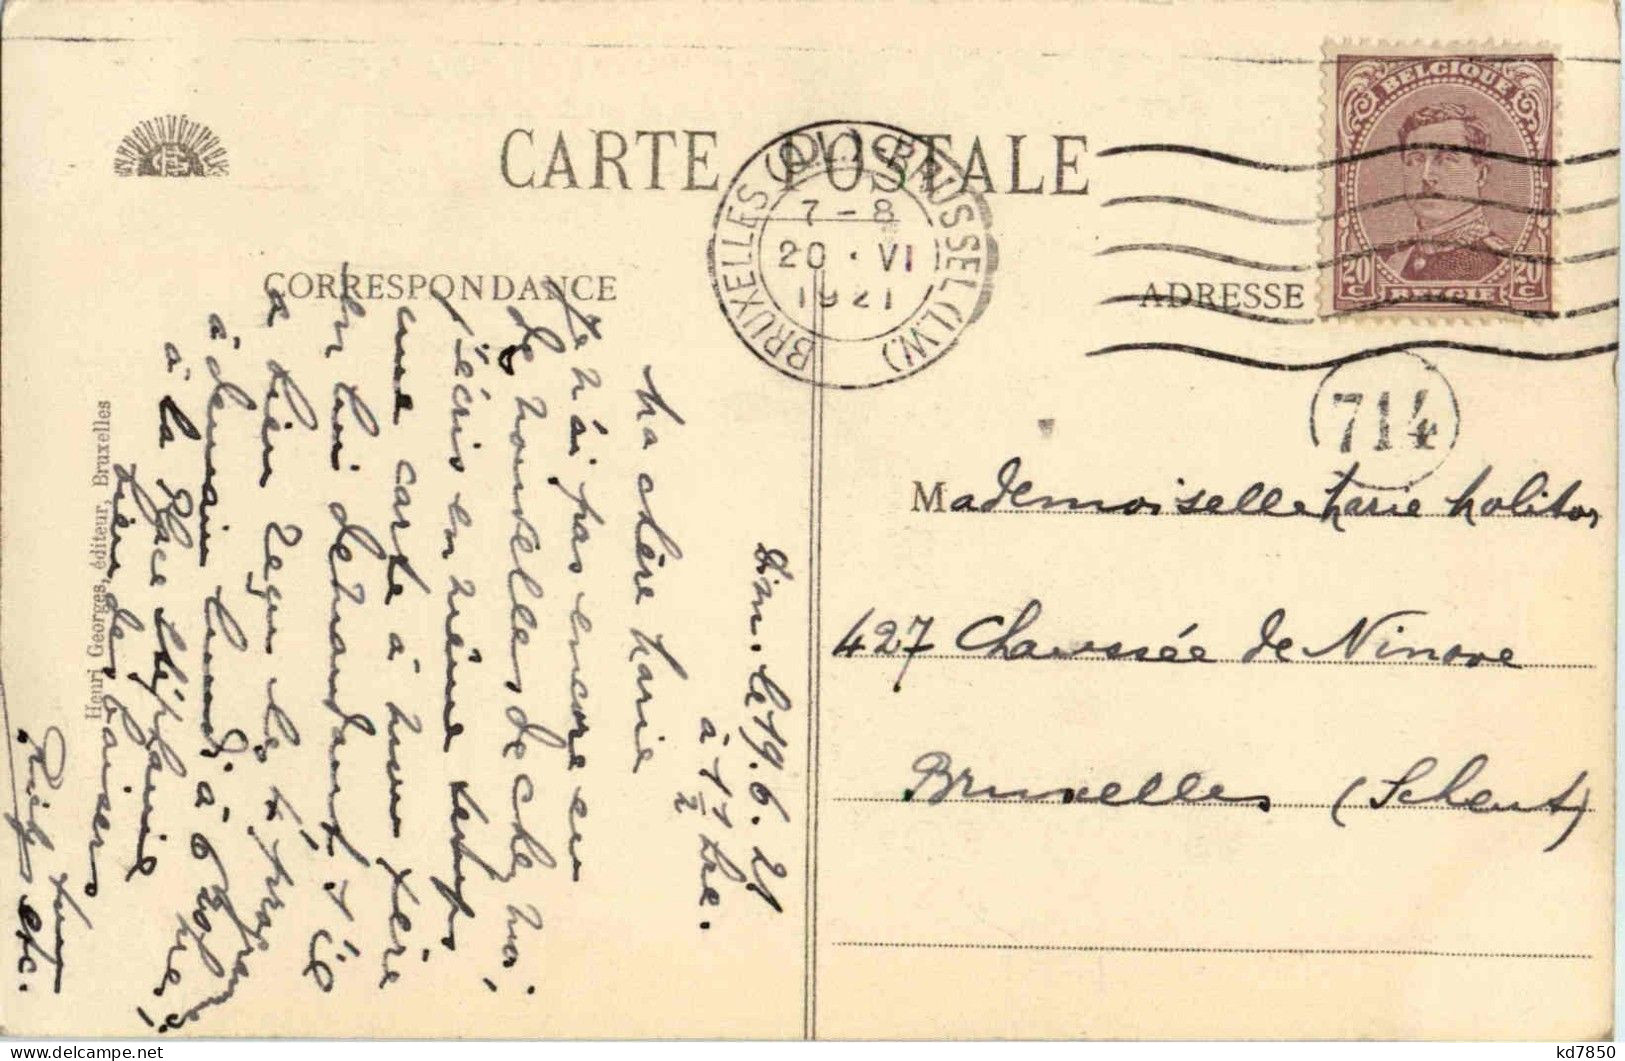 CARTE POSTALE
BRUXELLES (Q.L.)-BRUSSEL (L.W.)
7-8
20 · VI
1921
BELGIQUE
20 C
20 C
BELGIE
CORRESPONDANCE
ADRESSE
714
Dim. le 19.6.21
à 11 1/2 hre.
Ma chère Marie
Je n'ai pas encore eu
de nouvelles de chez moi,
j'écris en même temps
une carte à mon père
en lui demandant s'il
a bien reçu les
à demain lundi à 6
à la Place Stéphanie
bien des baisers
Mademoiselle Marie Molitor
427 Chaussée de Ninove
Bruxelles (Scheut)
Henri Georges, éditeur, Bruxelles
kd7850